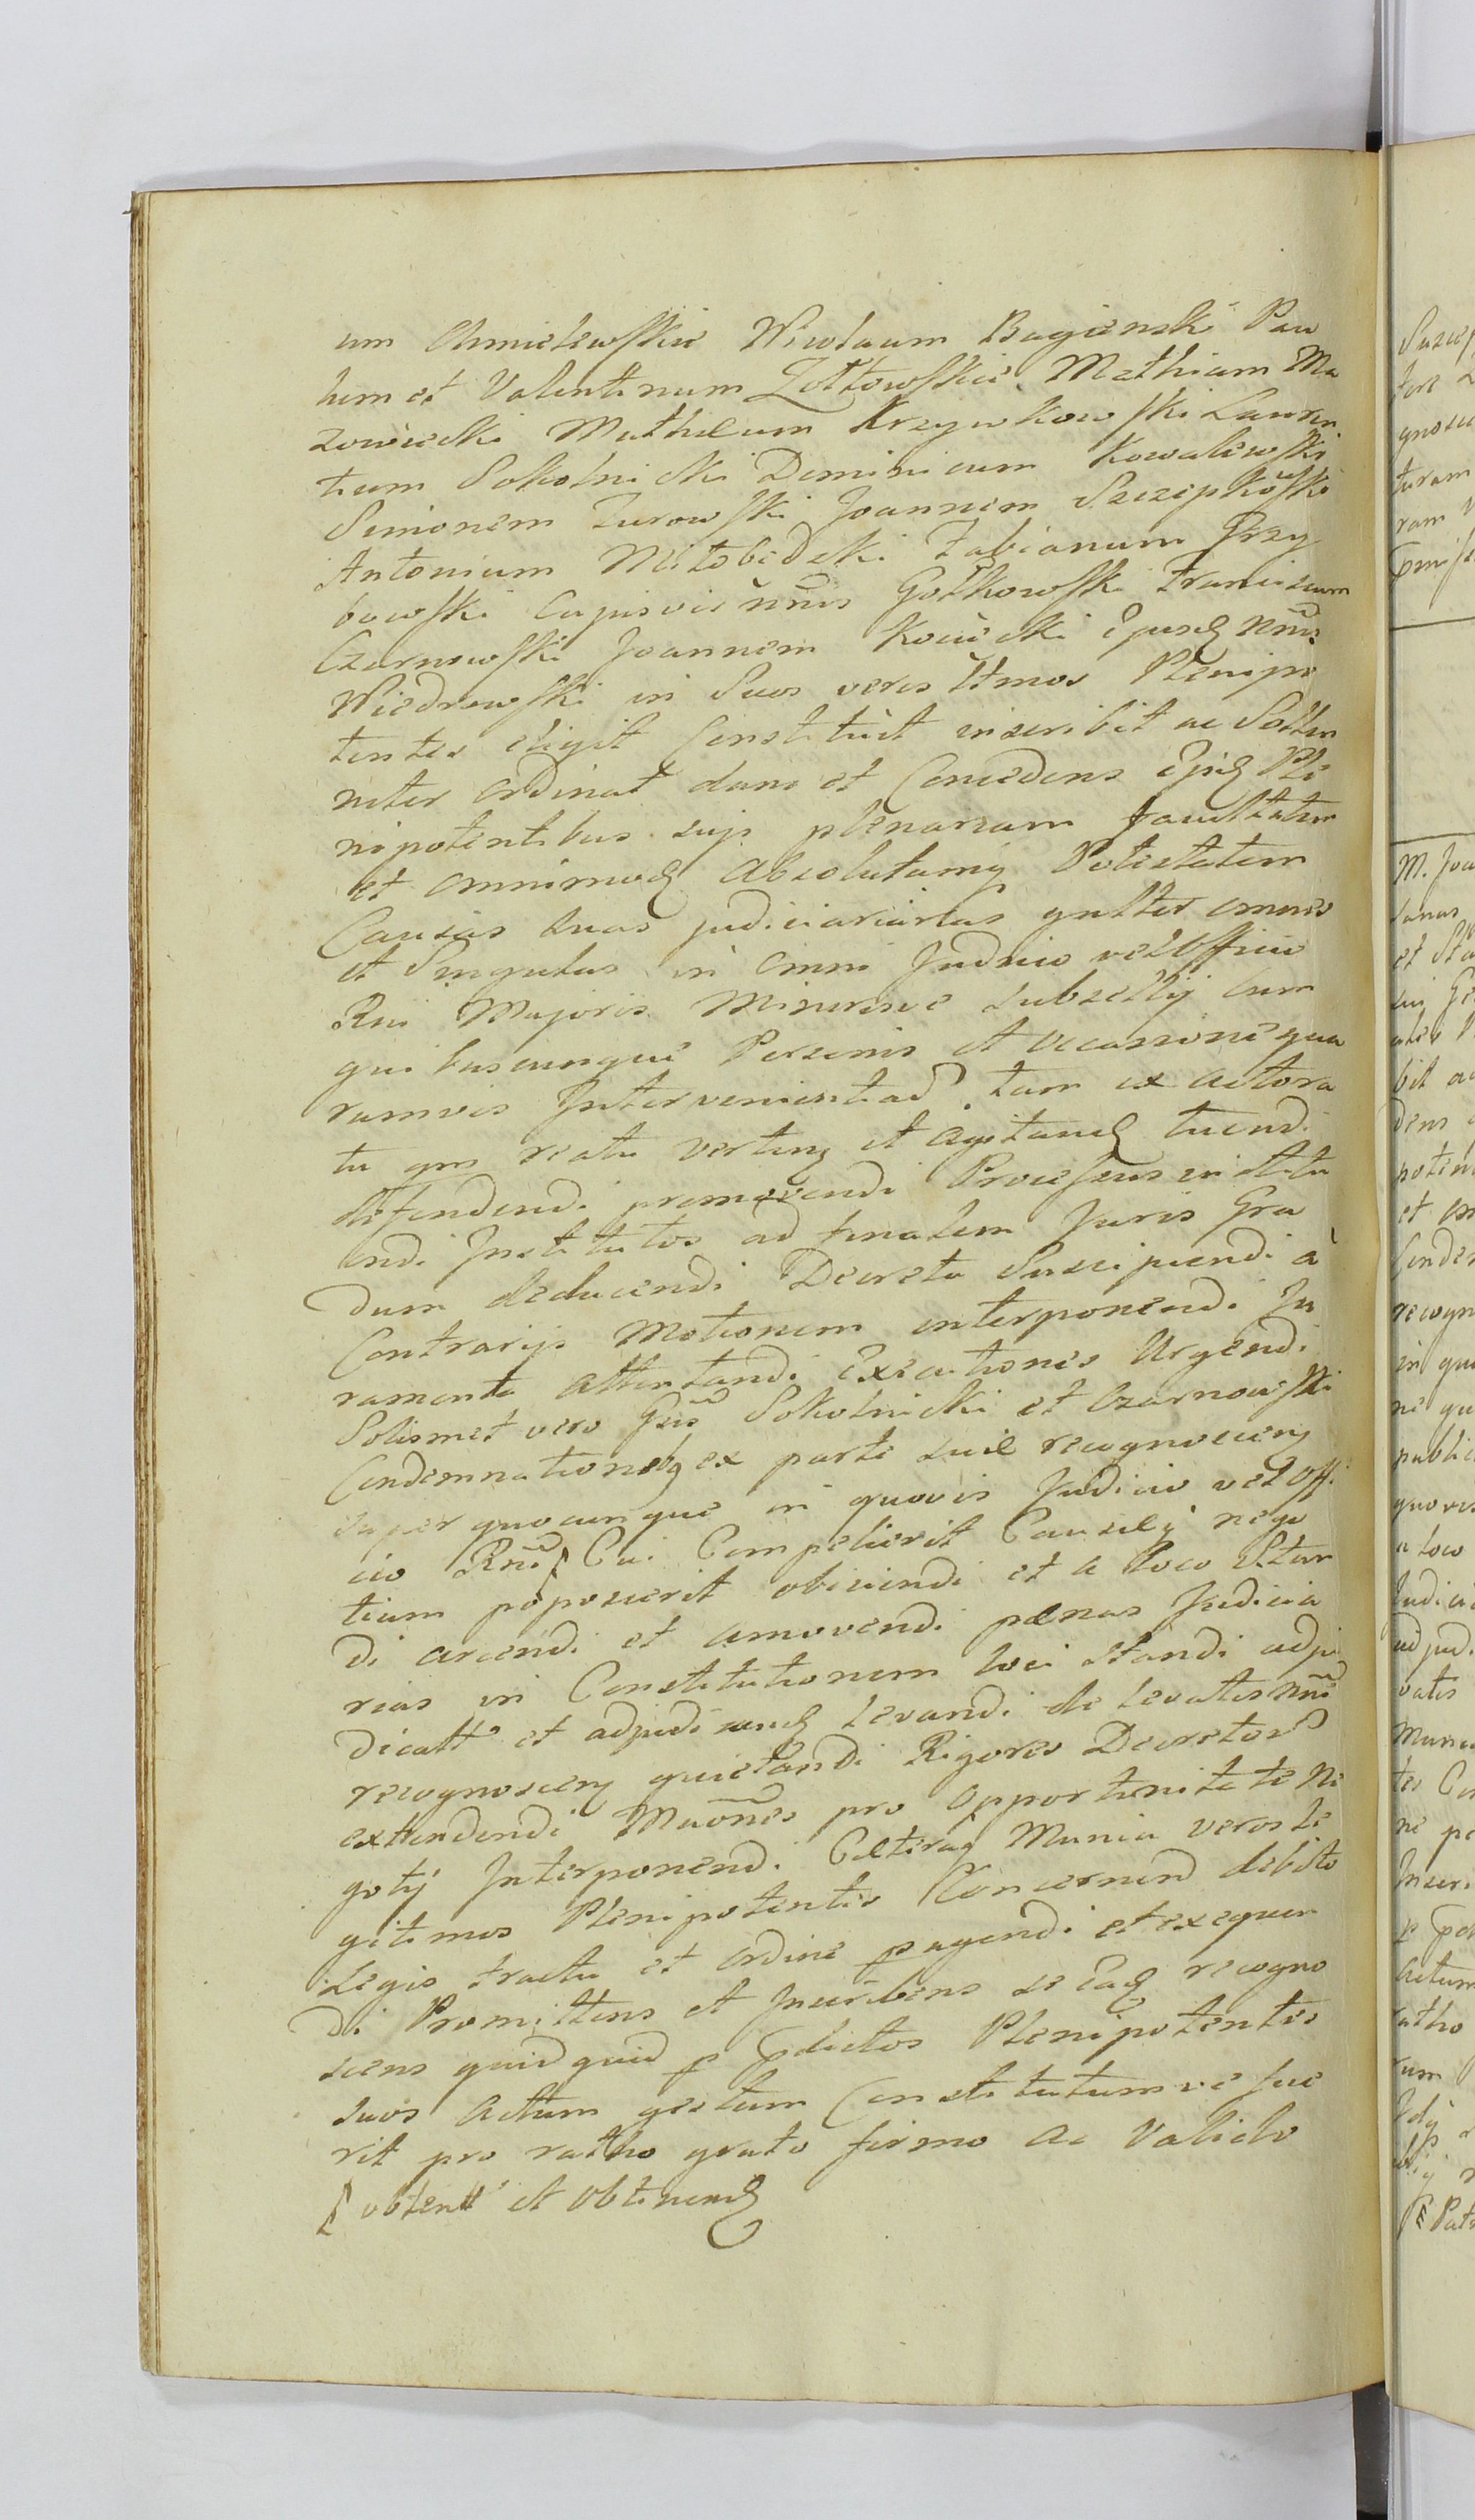 um Chmielewskie Nicolaum Bagienski Pau
lum et Valentinum Zołtowskie Mathiam Ma
zowiecki Mathæum Krzywkowski Lauren
tium Sokolnicki Dominicum Kowalewski
Simonem Zurowski Joannem Szczepkowski
Antonium Miłobedzki Fabianum Grzy
bowski cujusvis nnis Gołkowski Franciscum
Czarnowski Joannem Kocicki Ejusd nnis
Wiedrowski in Suos veros Ltmos Plenipo
tentes eligit Constituit inscribit ac Sollen
niter ordinat dans et Concedens Ejsd Ple
nipotentibus suis plenariam facultatem
et omnimod absolutamq Potestatem
Causas suas judiciariarias gnlter omnes
et Singulas in omni Judicio vel Officio
Rni Majoris Minorisve Subsellij cum
quibuscunque Personis et occasione qua
rumvis Intervenient ad tam ex actora
tu qm reatu verten et agitand tuendi
defendendi promovendi Processus institu
endi Institutos ad finalem Juris Gra
dum deducendi Decreta Suscipiendi à
Contrarijs Motionem interponendi Ju
ramenta attentandi Executiones Urgendi
Solismet vero Gsis Sokolnicki et Czarnowski
Condemnationes ex parte sui recognoscen
super quocunque in quovis Judicio vel Offi
cio Rni Cui Competierit Causæq nego
tium poposcerit obiciendi et a loco Stan
di arcendi et amovendi pænas Judicia
rias in Constitutionem loci standi adju
dicatt et adjudicand Levandi de levatis nni
recognoscen quietandi Rigores Decretor
extendendi Mnones pro opportunitate Ne
gotij Interponendi Cæteraq Munia veros Le
gitimos Plenipotentes Concernend debito
Legis tractu et ordine pagendi et exequen
di Promittens et Inscribens se Ead recogno
scens quidquid p pdictos Plenipotentes
suos actum gestum Constitutumve fue
rit pro ratho grato firmo ac Valido
obtent et obtinend